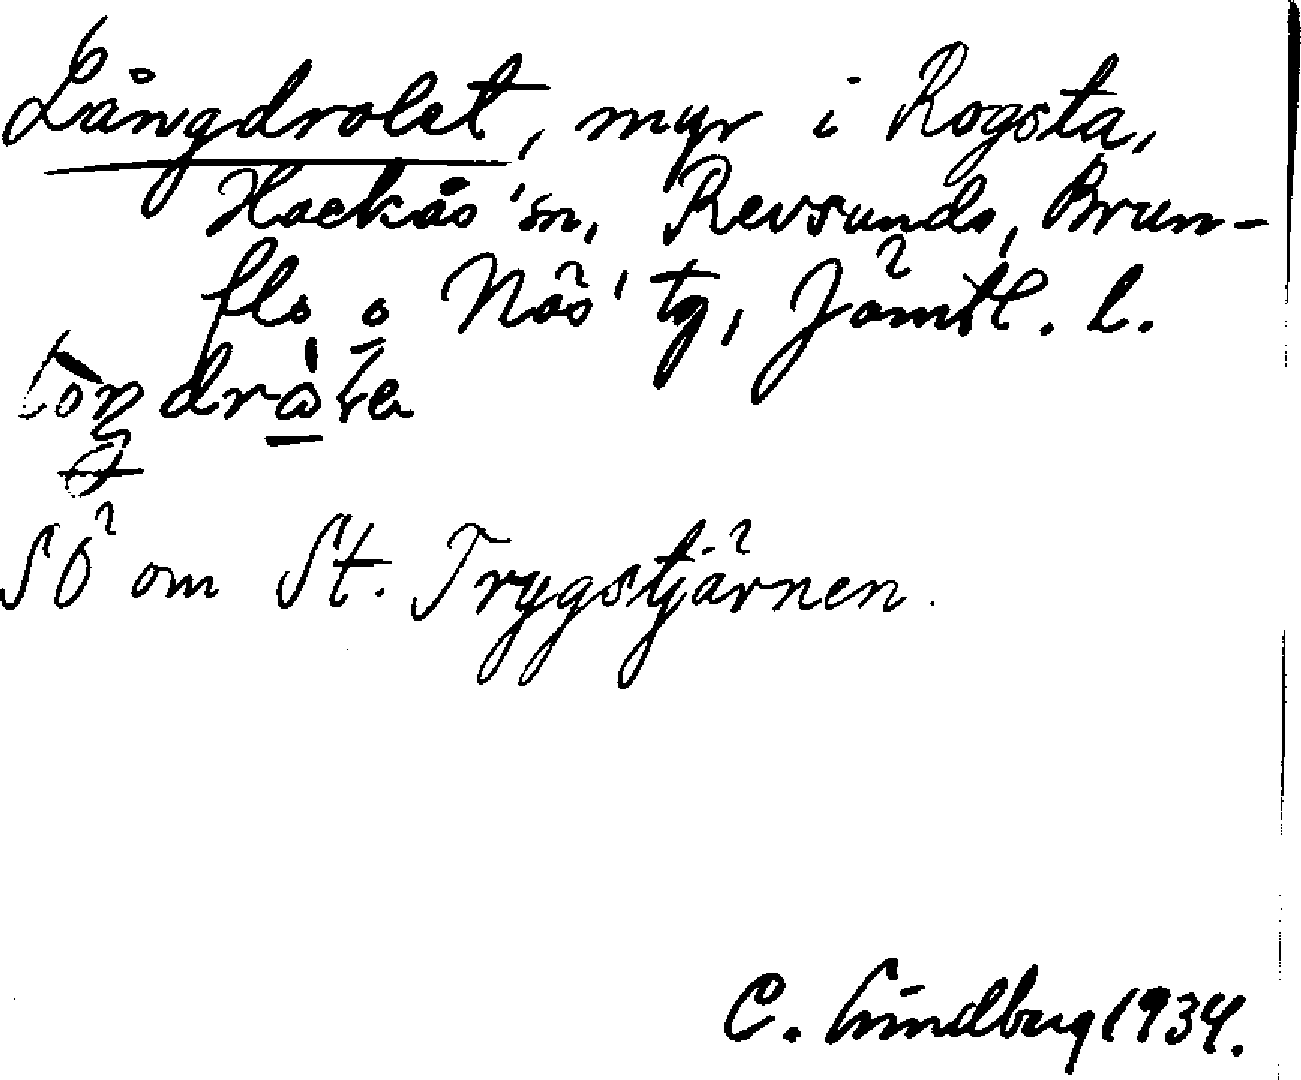 Långdrolet, myr i Rogsta,
Hackås sn, Revsunds, Brun-
flo o Näs' tg, Jämtl. l.
SÖ om St. Trygstjärnen.
C. Lindberg 1934.